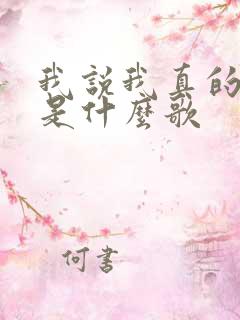 我說我真的
是什麼歌
何書